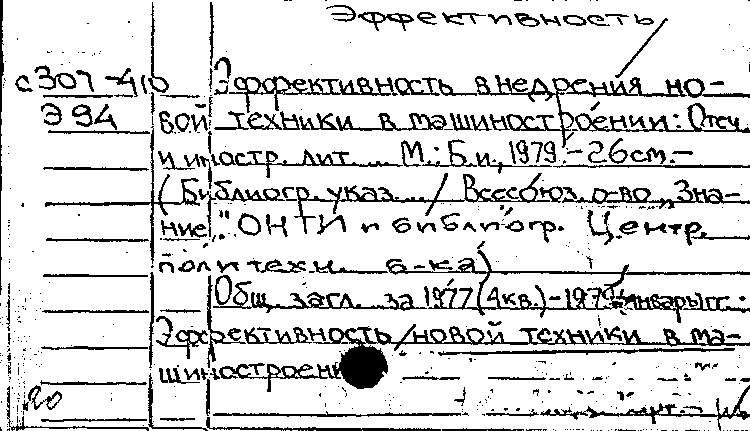 Эффективность
с307-410 Эффективность внедрения но-
Э 94 вой техники в машиностроении: Отеч.
и иностр. лит ... М.: Б.и, 1979.-26см.-
(Библиогр. указ.../ Всесоюз. о-во „Зна-
ние". ОНТИ и библиогр. Центр.
политехн. б-ка)
Общ. загл. за 1977(4кв.)-1979
Эффективность/новой техники в ма-
шиностроени
20